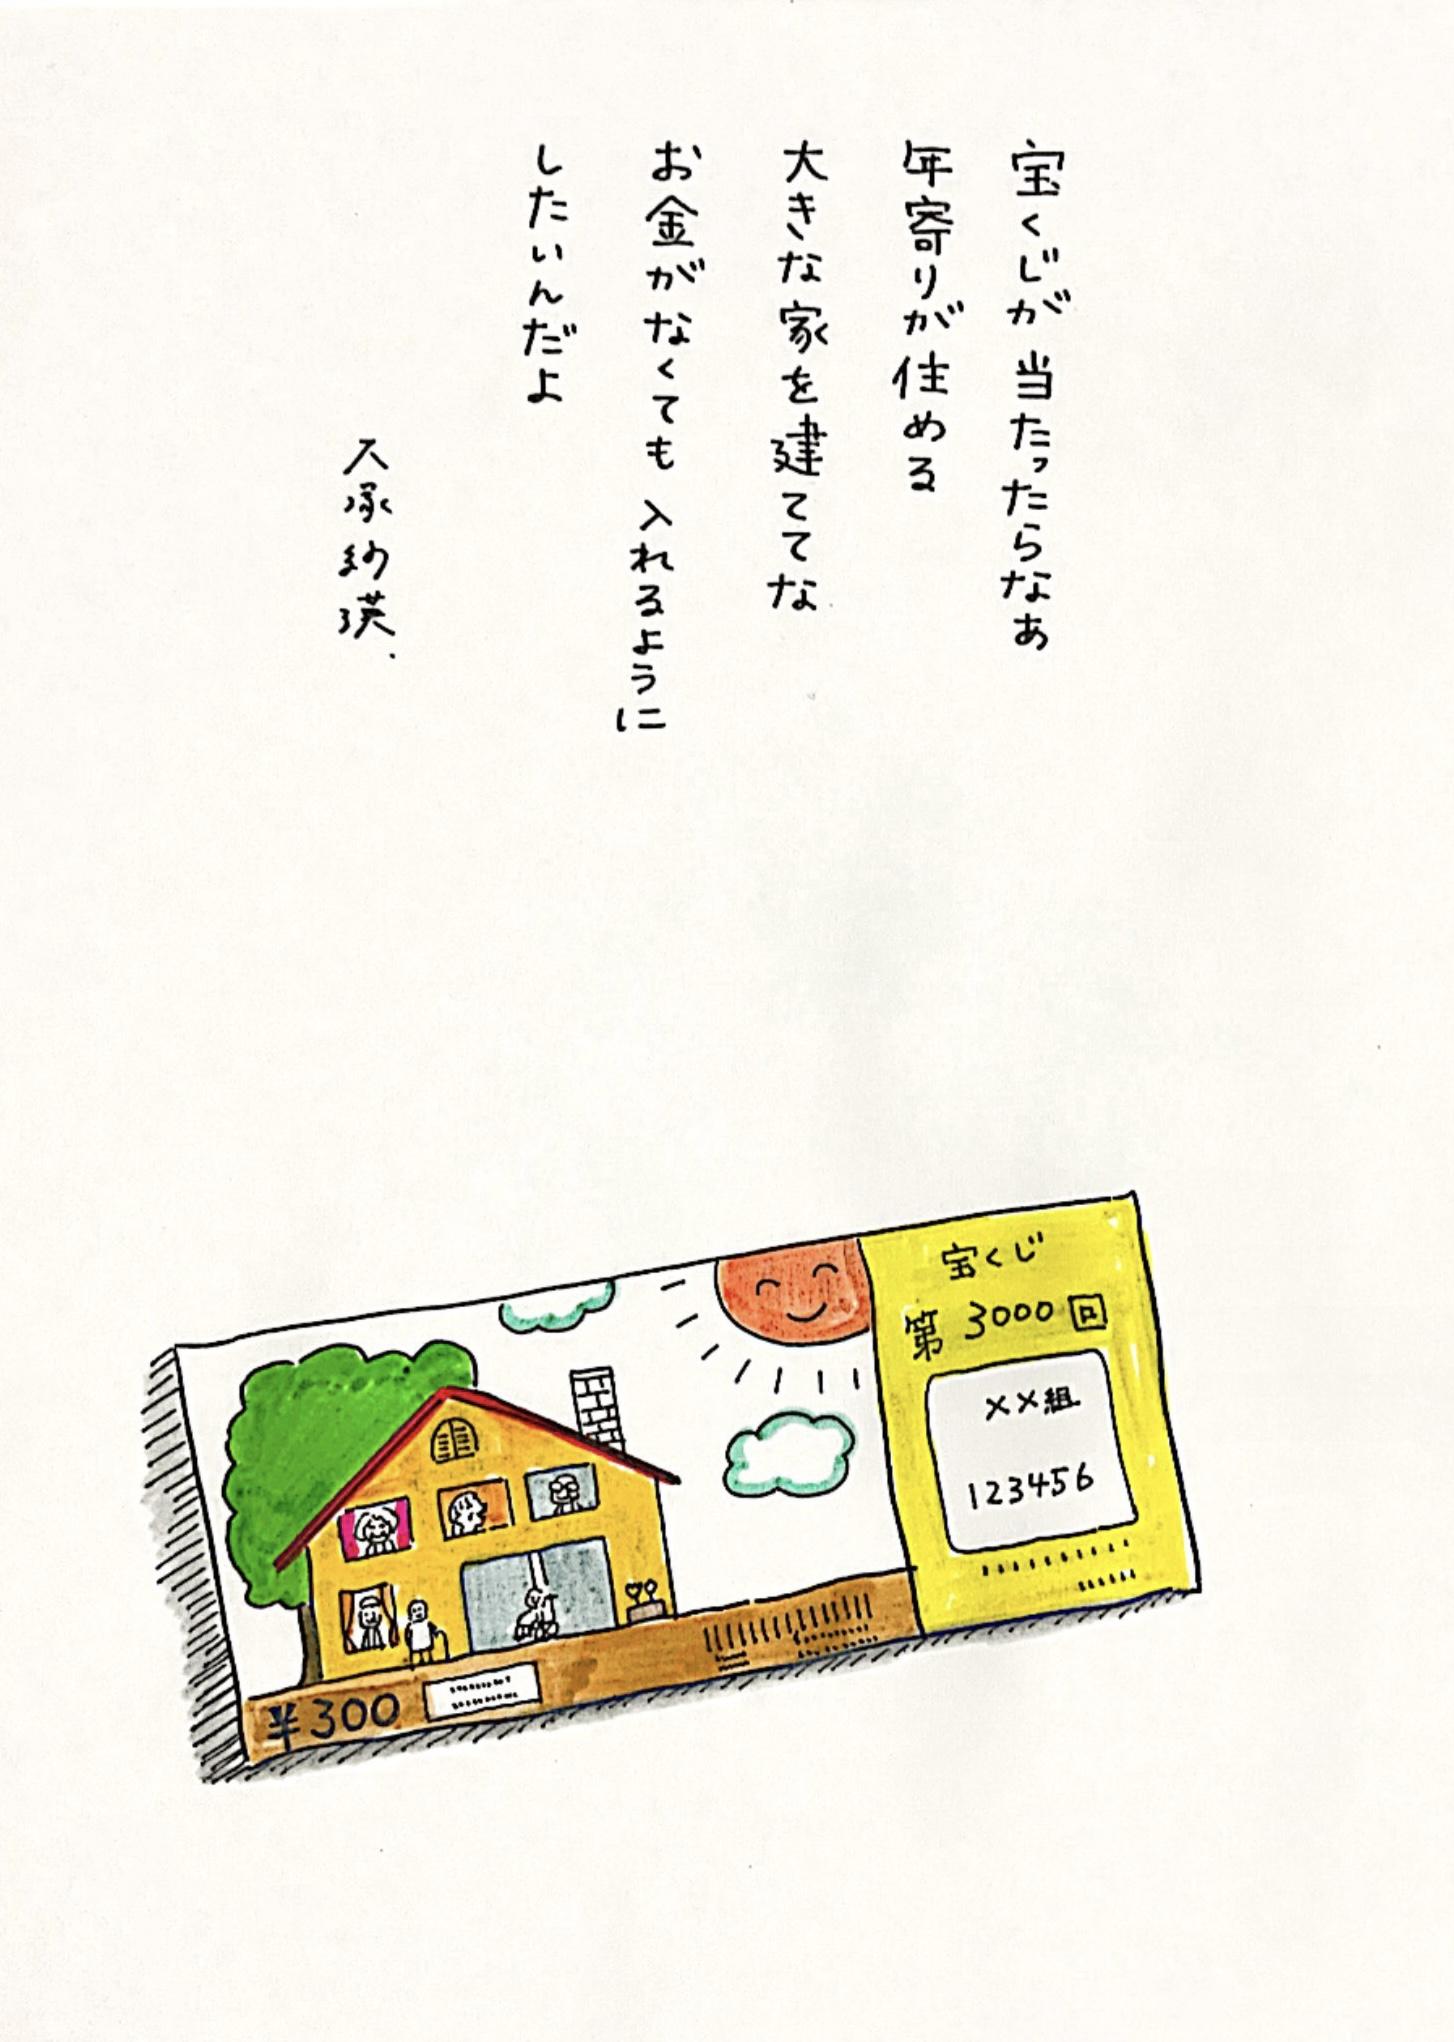 宝くじが当たったらなぁ
年寄りが住める
大きな家を建ててな
お金がなくても入れるように
したいんだよ
宝くじ
第3000回
××組
123456
¥300